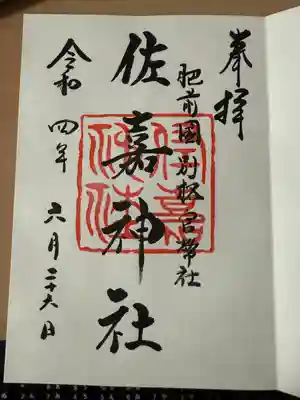 奉拝
肥前國別格官幣社
佐嘉神社
令和四年六月二十六日